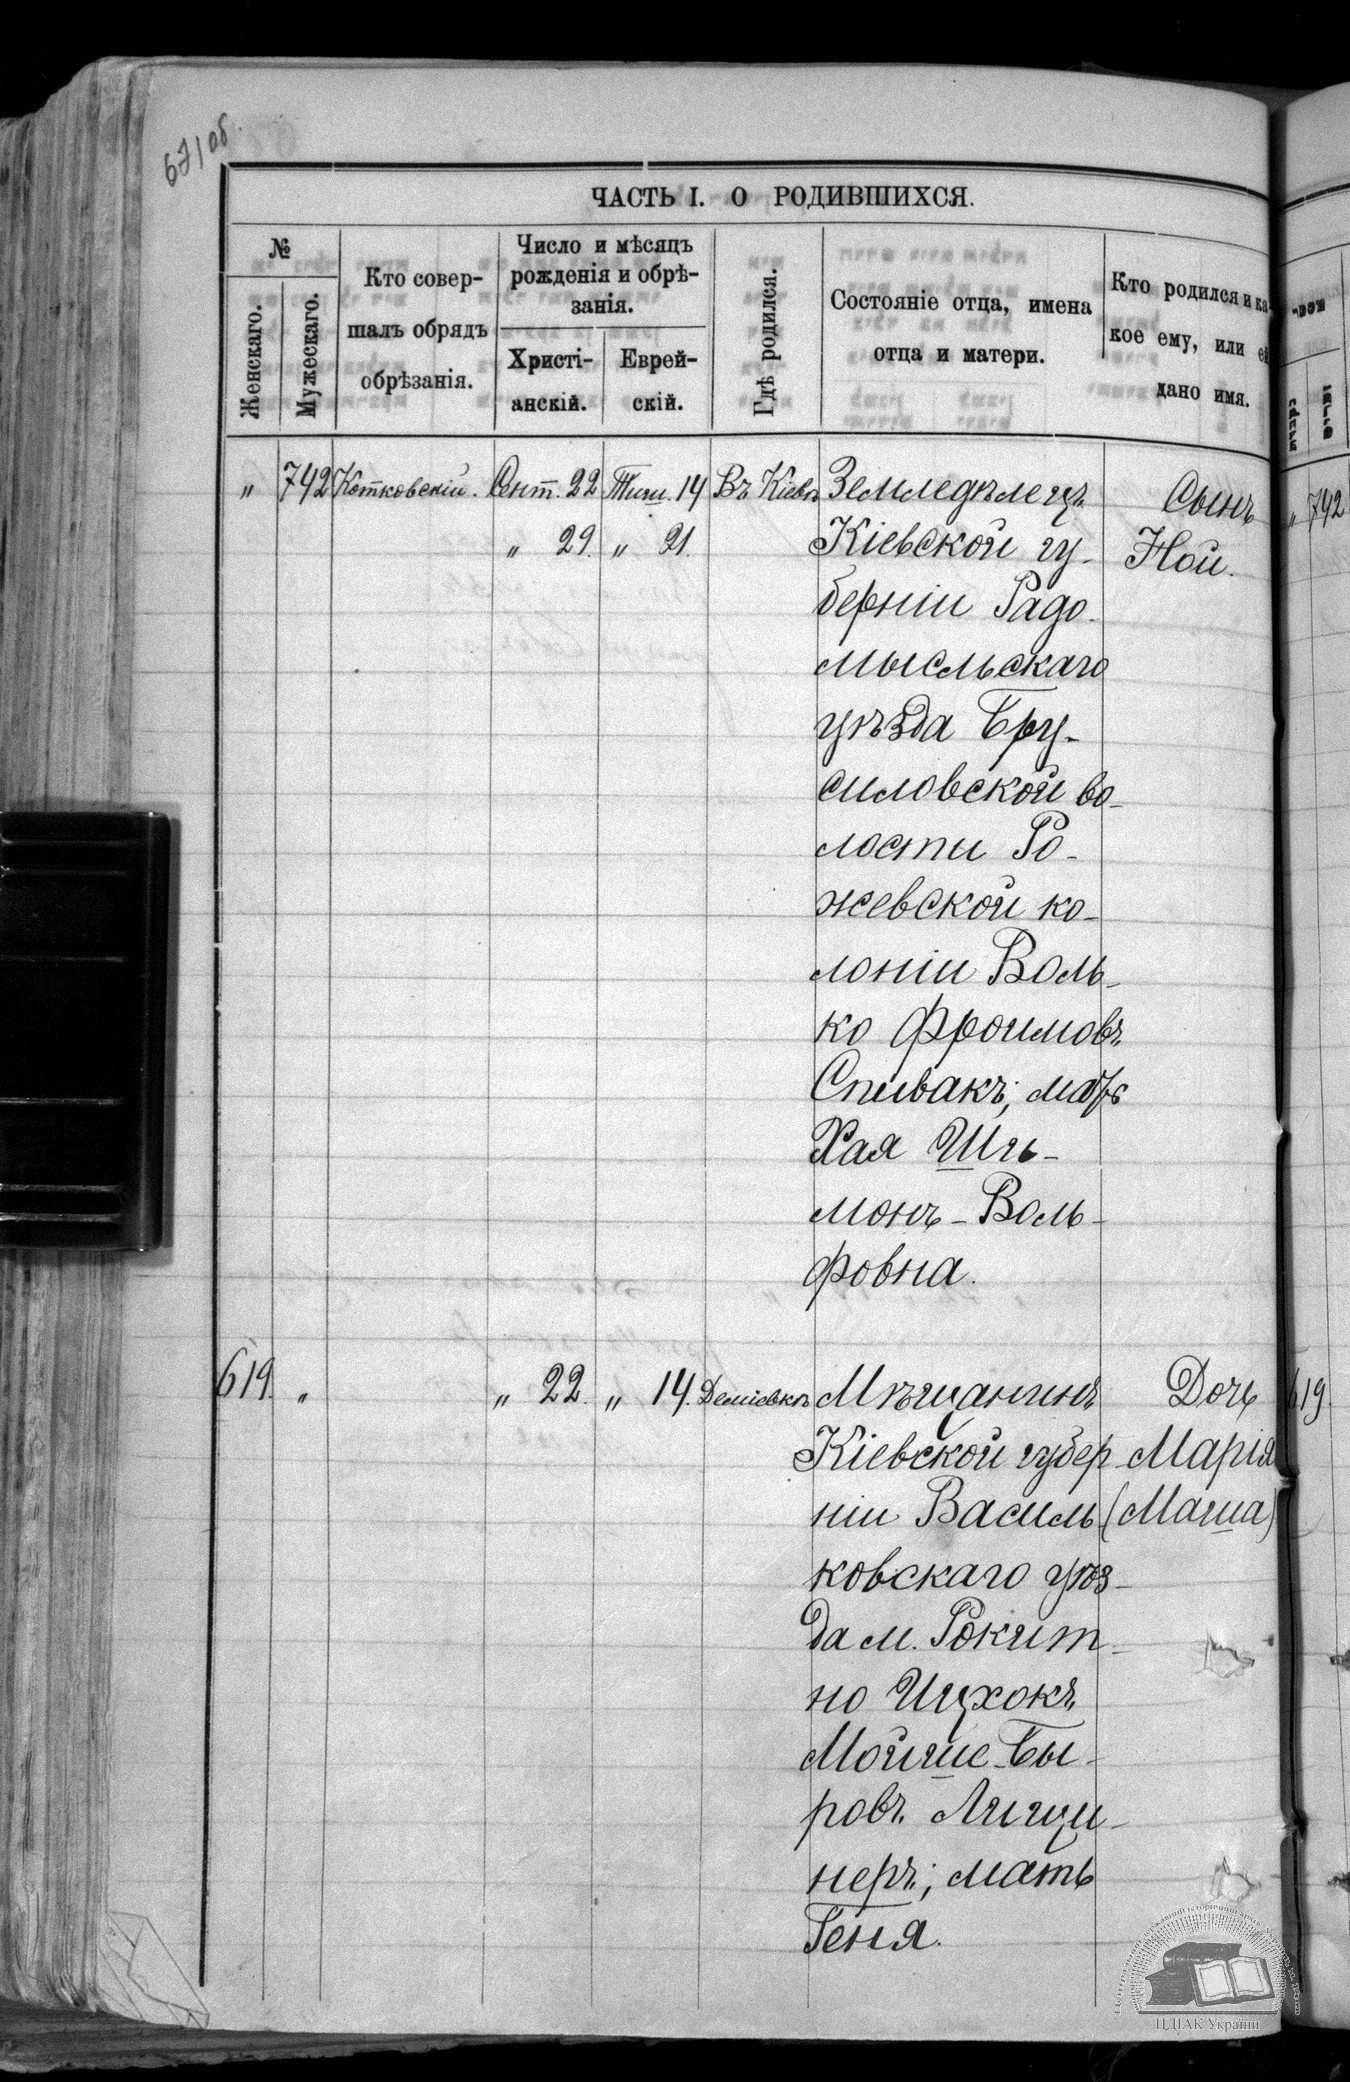 67 об.
ЧАСТЬ I. О РОДИВШИХСЯ.
№
Женскаго.
Мужескаго.
Кто совер-
шалъ обрядъ
обрѣзанія.
Число и мѣсяцъ
рожденія и обрѣ-
занія.
Христі-
анскій.
Еврей-
скій.
Гдѣ родился.
Состояніе отца, имена
отца и матери.
Кто родился и ка-
кое ему, или ей
дано имя.
" 742 Котковскій. Сент. 22 Тиш. 14 Въ Кіевѣ Земледѣлецъ Сынъ " 742
" 29. " 21. Кіевской гу- Ной.
берніи Радо-
мысльскаго
уѣзда Бру-
силовской во-
лости Ро-
жевской ко-
лоніи Воль-
ко Фроимовъ
Спивакъ, мать
Хая Шль-
монъ-Воль-
фовна.
619. " " 22. " 14. Деміевкѣ Мѣщанинъ Дочь 619.
Кіевской губер- Марія
ніи Василь- (Маша)
ковскаго уѣз-
да м. Рокит-
но Ицхокъ
Мойше-Бы-
ровъ Лищи-
неръ, мать
Геня.
ЦДІАК України